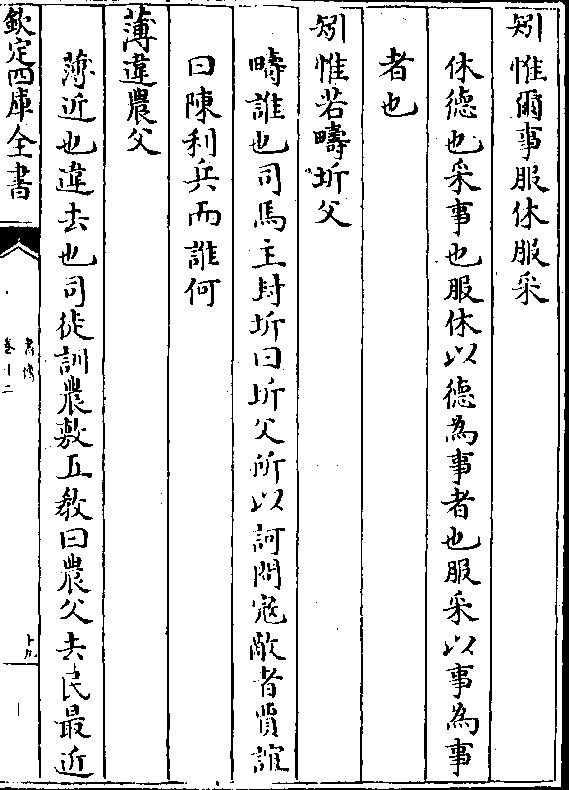 矧惟爾事服休服采
休德也采事也服休以德為事者也服采以事為事
者也
矧惟若疇圻父
疇誰也司馬主封圻曰圻父所以訶問寇敵者賈誼
曰陳利兵而誰何
薄違農父
薄近也違去也司徒訓農敷五教曰農父去民最近
欽定四庫全書
書傳
卷十二